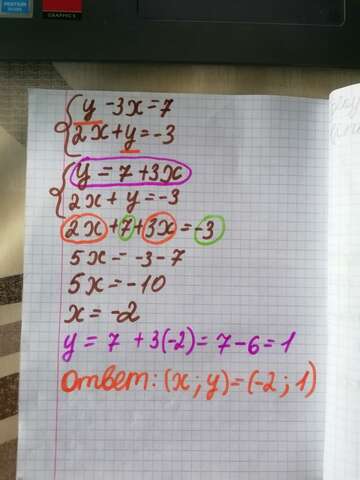 PENTIUM
GRAPHICS
y - 3x = 7
2x + y = -3
y = 7 + 3x
2x + y = -3
2x + 7 + 3x = -3
5x = -3 - 7
5x = -10
x = -2
y = 7 + 3(-2) = 7 - 6 = 1
Ответ: (x; y) = (-2; 1)